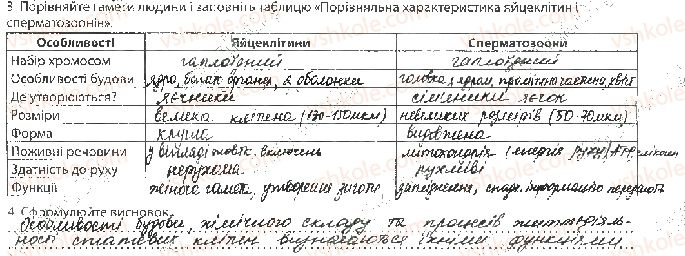 3 Порівняйте гамети людини і заповніть таблицю «Порівняльна характеристика яйцеклітин і
сперматозоонів».
Особливості Яйцеклітини Сперматозоони
Набір хромосом гаплоїдний гаплоїдний
Особливості будови ядро, білок 2 оболонки головка, ядром, проміжна частина, хвіст
Де утворюються? яєчники сім'яники
Розміри велика клітина (130-150мкм) невеликих розмірів (50-70мкм)
Форма кругла видовжена
Поживні речовини у вигляді жовтк. включень мітохондрія (енергія руху)
Здатність до руху нерухома рухливі
Функції утворення зиготи запліднення, спадк. інформацію передають
4 Сформулюйте висновок.
Особливості будови, хімічного складу та процесів життєдіяль-
ності статевих клітин визначаються їхніми функціями.